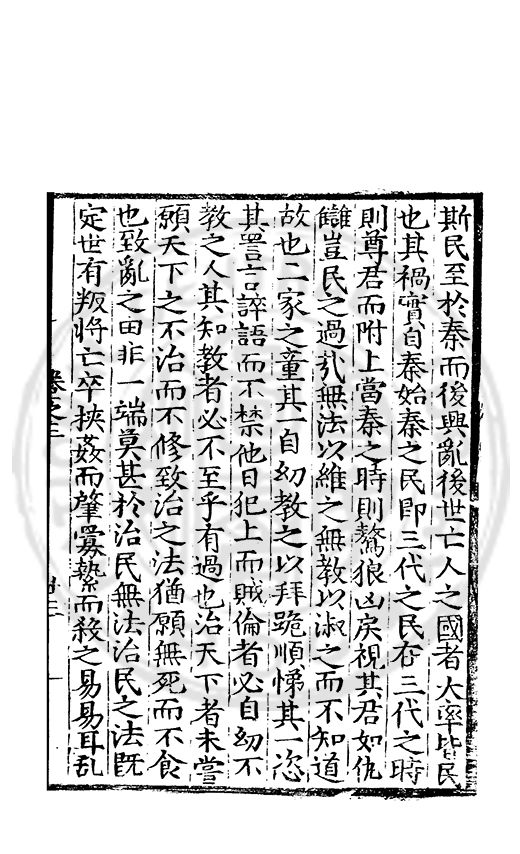 斯民至於秦而後興亂後世亡人之國者大率皆民
也其禍實自秦始秦之民即三代之民在三代之時
則尊君而附上當秦之時則驁狼凶戾視其君如仇
讎豈民之過㢤無法以維之無教以淑之而不知道
故也二家之童其一自幼教之以拜跪順悌其一恣
其詈言誶語而不禁他日犯上而賊倫者必自幼不
教之人其知教者必不至乎有過也治天下者未嘗
願天下之不治而不修致治之法猶願無死而不食
也致亂之田非一端莫甚於治民無法治民之法既
定世有叛將亡卒挾姦而肇釁縶而殺之易易耳亂
卷之三